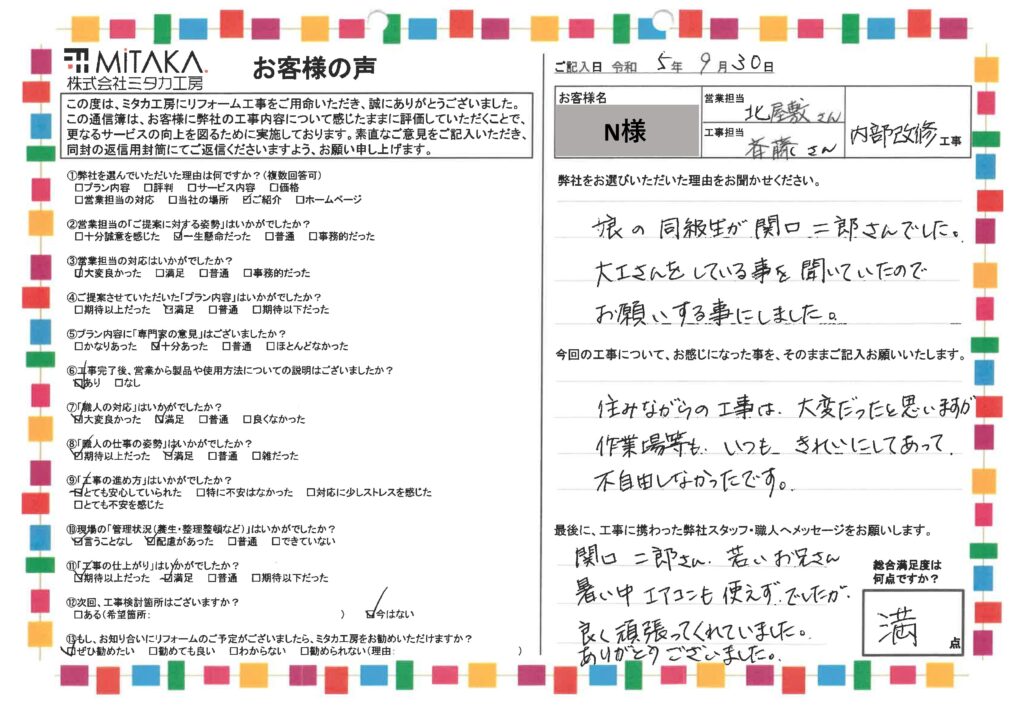 MiTAKA.
株式会社ミタカ工房
お客様の声
この度は、ミタカ工房にリフォーム工事をご用命いただき、誠にありがとうございました。
この通信簿は、お客様に弊社の工事内容について感じたままに評価していただくことで、
更なるサービスの向上を図るために実施しております。素直なご意見をご記入いただき、
同封の返信用封筒にてご返信くださいますよう、お願い申し上げます。
①弊社を選んでいただいた理由は何ですか?(複数回答可)
□プラン内容 □評判 □サービス内容 □価格
□営業担当の対応 □当社の場所 ☑ご紹介 □ホームページ
②営業担当の「ご提案に対する姿勢」はいかがでしたか?
□十分誠意を感じた ☑一生懸命だった □普通 □事務的だった
③営業担当の対応はいかがでしたか?
☑大変良かった □満足 □普通 □事務的だった
④ご提案させていただいた「プラン内容」はいかがでしたか?
□期待以上だった ☑満足 □普通 □期待以下だった
⑤プラン内容に「専門家の意見」はございましたか?
□かなりあった ☑十分あった □普通 □ほとんどなかった
⑥工事完了後、営業から製品や使用方法についての説明はございましたか?
☑あり □なし
⑦「職人の対応」はいかがでしたか?
☑大変良かった ☑満足 □普通 □良くなかった
⑧「職人の仕事の姿勢」はいかがでしたか?
☑期待以上だった ☑満足 □普通 □雑だった
⑨「工事の進め方」はいかがでしたか?
☑とても安心していられた □特に不安はなかった □対応に少しストレスを感じた
□とても不安を感じた
⑩現場の「管理状況(養生・整理整頓など)」はいかがでしたか?
☑言うことなし ☑配慮があった □普通 □できていない
⑪「工事の仕上がり」はいかがでしたか?
☑期待以上だった ☑満足 □普通 □期待以下だった
⑫次回、工事検討箇所はございますか?
□ある(希望箇所: ) ☑今はない
⑬もし、お知り合いにリフォームのご予定がございましたら、ミタカ工房をお勧めいただけますか?
☑ぜひ勧めたい □勧めても良い □わからない □勧められない(理由: )
ご記入日 令和 5年 9月30日
お客様名
N様
営業担当
北屋敷さん
工事担当
斉藤さん
内部改修工事
弊社をお選びいただいた理由をお聞かせください。
娘の同級生が関口二郎さんでした。
大工さんをしている事を聞いていたので
お願いする事にしました。
今回の工事について、お感じになった事を、そのままご記入お願いいたします。
住みながらの工事は、大変だったと思いますが
作業場等も、いつも きれいにしてあって
不自由しなかったです。
最後に、工事に携わった弊社スタッフ・職人へメッセージをお願いします。
関口二郎さん、若いお兄さん
暑い中 エアコンも使えず でしたが、
良く頑張ってくれていました。
ありがとうございました。
総合満足度は
何点ですか?
満点